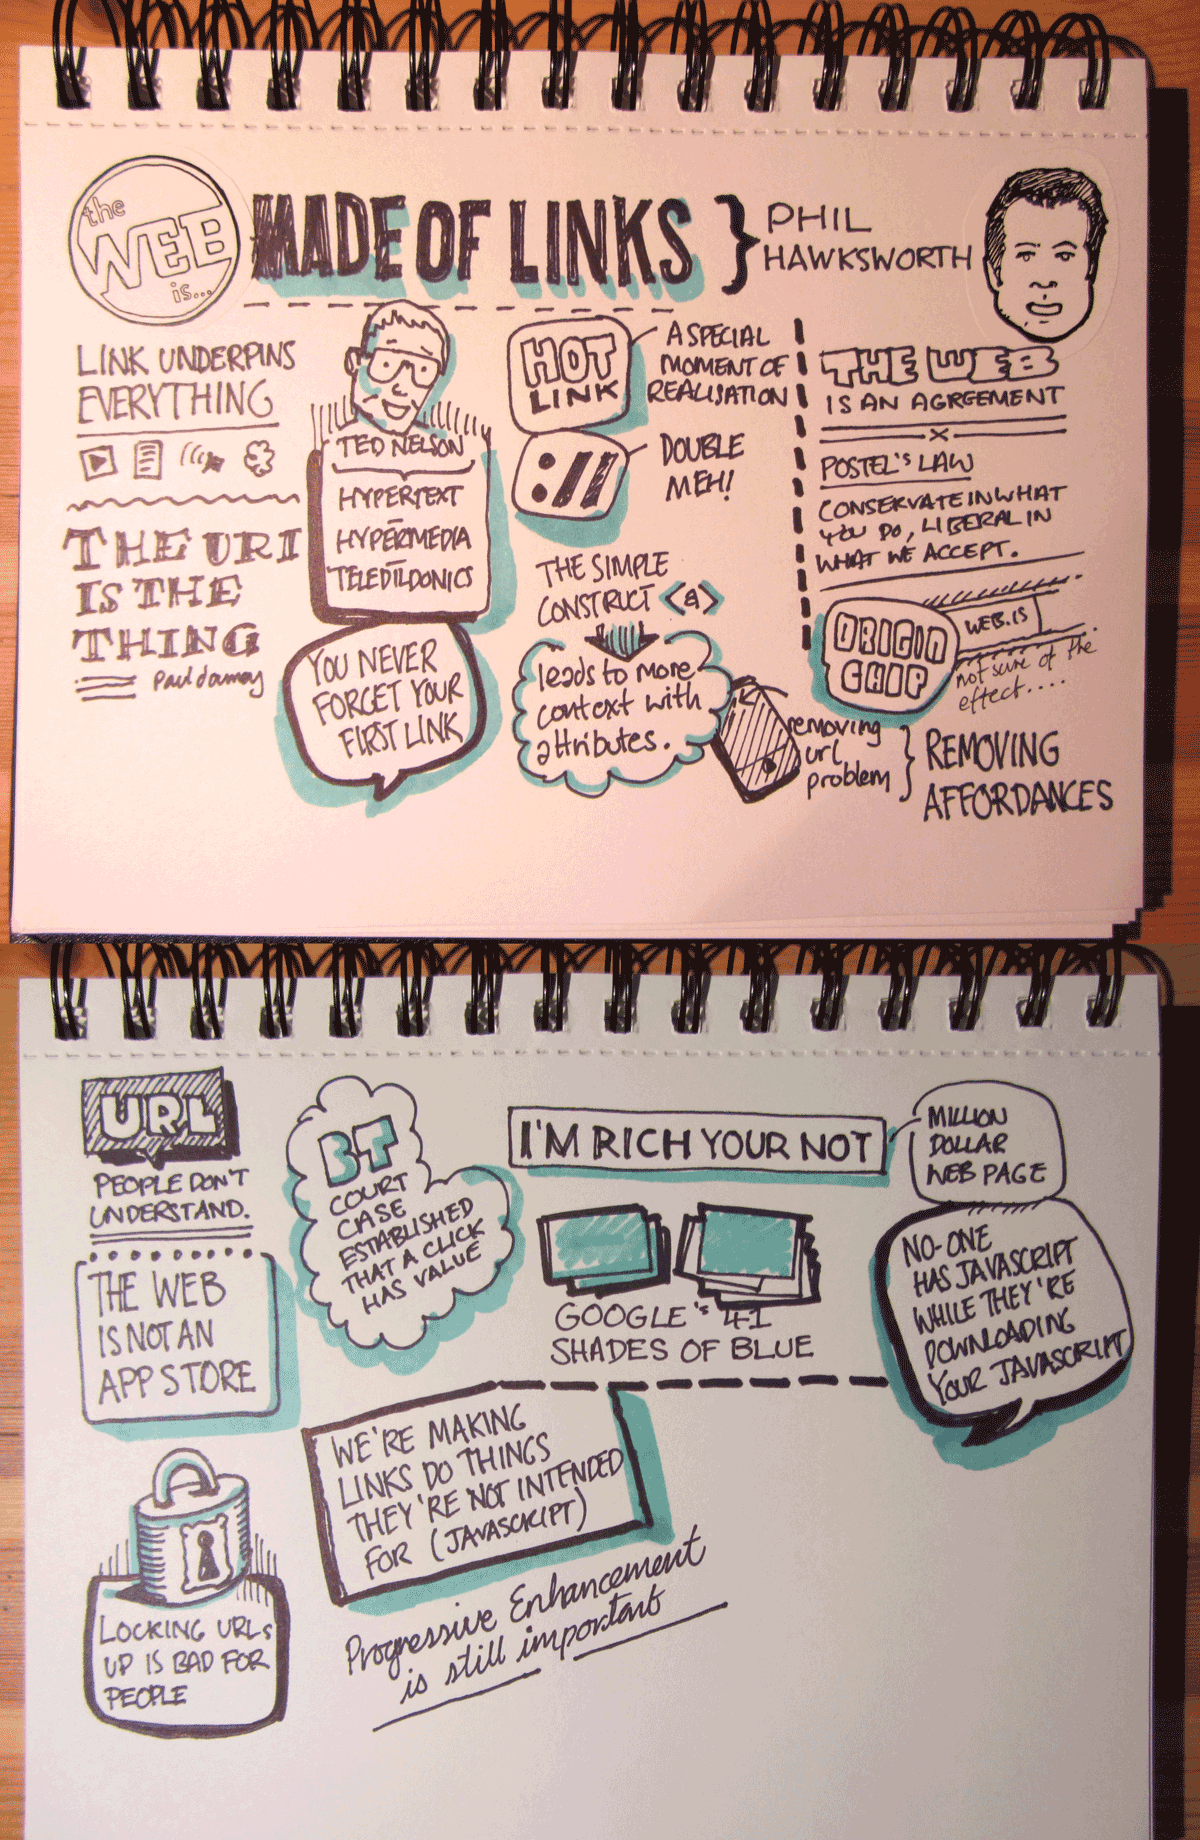 the
WEB
is...
MADE OF LINKS
PHIL
HAWKSWORTH
LINK UNDERPINS
EVERYTHING
THE URI
IS THE
THING
TED NELSON
HYPERTEXT
HYPERMEDIA
TELEDILDONICS
YOU NEVER
FORGET YOUR
FIRST LINK
HOT
LINK
A SPECIAL
MOMENT OF
REALISATION
://
DOUBLE
MEH!
THE SIMPLE
CONSTRUCT <a>
leads to more
context with
attributes.
THE WEB
IS AN AGREEMENT
POSTEL'S LAW
CONSERVATE IN WHAT
YOU DO, LIBERAL IN
WHAT WE ACCEPT.
ORIGIN
CHIP
WEB.IS
not sure of the
effect....
removing
url
problem
REMOVING
AFFORDANCES
URL
PEOPLE DON'T
UNDERSTAND.
THE WEB
IS NOT AN
APP STORE
LOCKING URLs
UP IS BAD FOR
PEOPLE
BT
COURT
CASE
ESTABLISHED
THAT A CLICK
HAS VALUE
I'M RICH YOUR NOT
MILLION
DOLLAR
WEB PAGE
GOOGLE'S 41
SHADES OF BLUE
NO-ONE
HAS JAVASCRIPT
WHILE THEY'RE
DOWNLOADING
YOUR JAVASCRIPT
WE'RE MAKING
LINKS DO THINGS
THEY'RE NOT INTENDED
FOR (JAVASCRIPT)
Progressive Enhancement
is still important